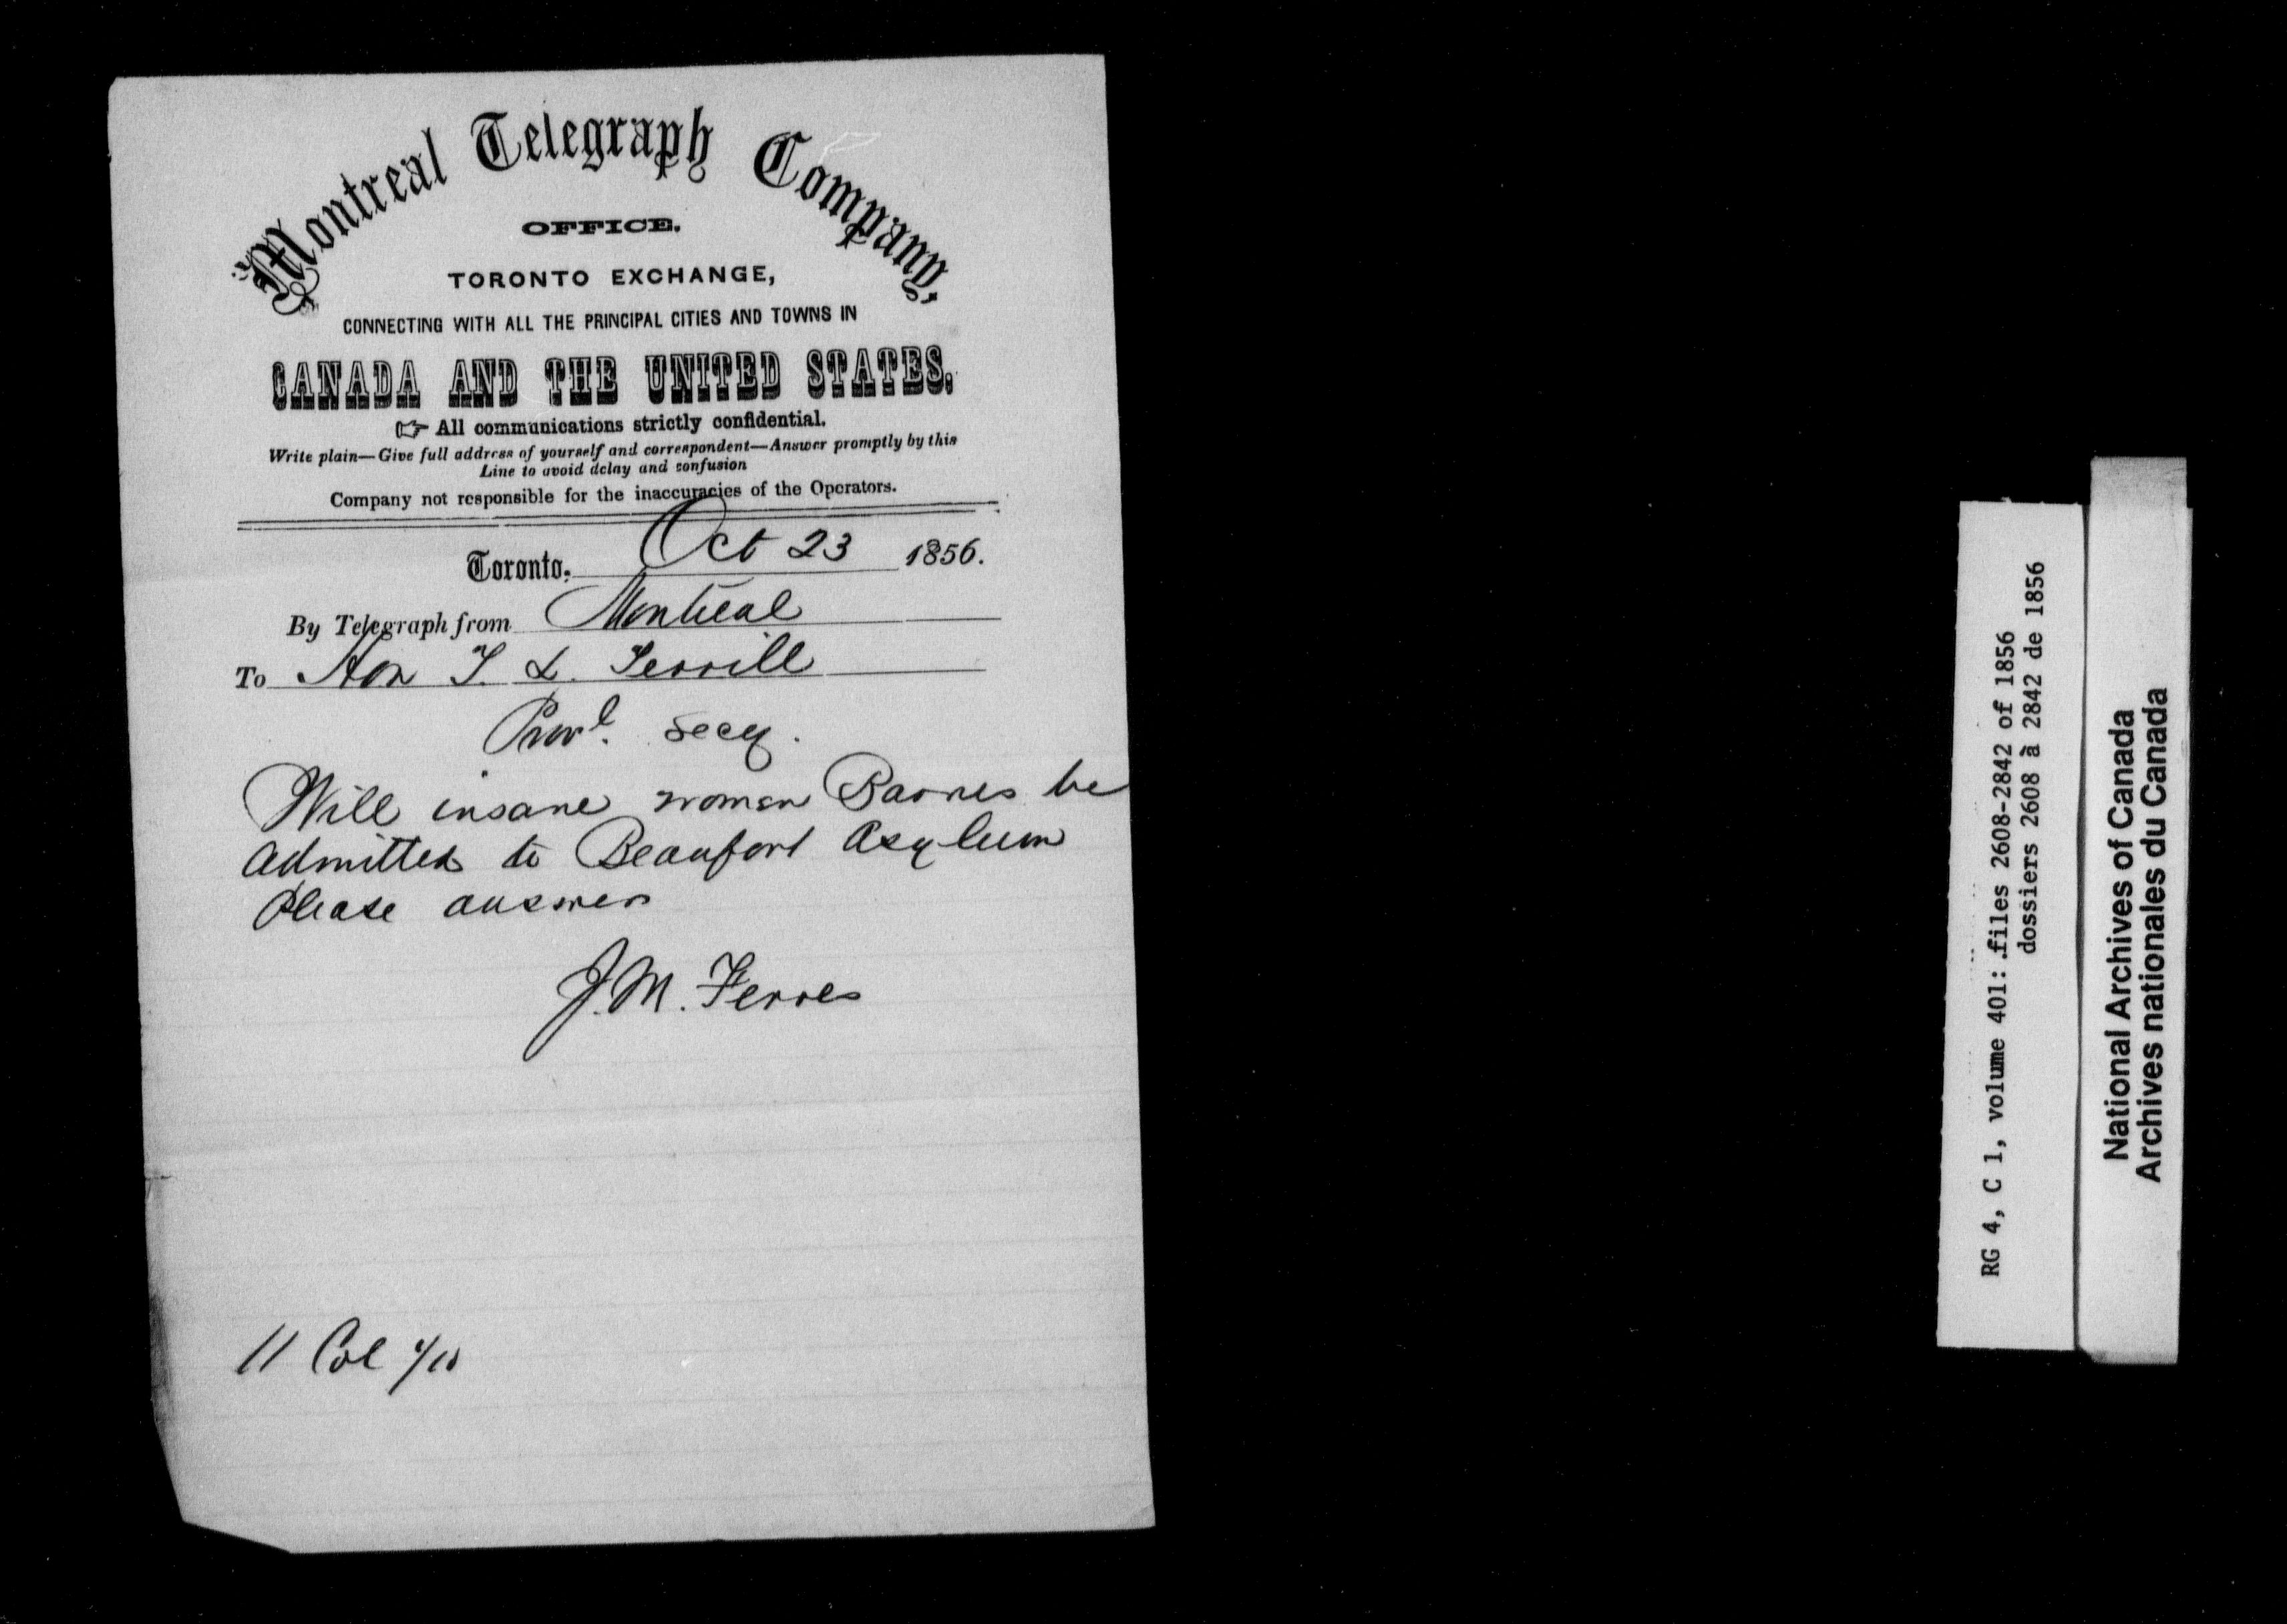 Montreal Telegraph Company,
OFFICE.
TORONTO EXCHANGE,
CONNECTING WITH ALL THE PRINCIPAL CITIES AND TOWNS IN
CANADA AND THE UNITED STATES.
☞ All communications strictly confidential.
Write plain—Give full address of yourself and correspondent—Answer promptly by this
Line to avoid delay and confusion
Company not responsible for the inaccuracies of the Operators.
Toronto, Oct 23 1856.
By Telegraph from Montreal
To Hon T. L. Terrill
Provl. Secy.
Will insane woman Barnes be
admitted to Beaufort Asylum
Please answer
J. M. Ferres
11 Col
RG 4, C 1, volume 401: files 2608-2842 of 1856
dossiers 2608 à 2842 de 1856
National Archives of Canada
Archives nationales du Canada